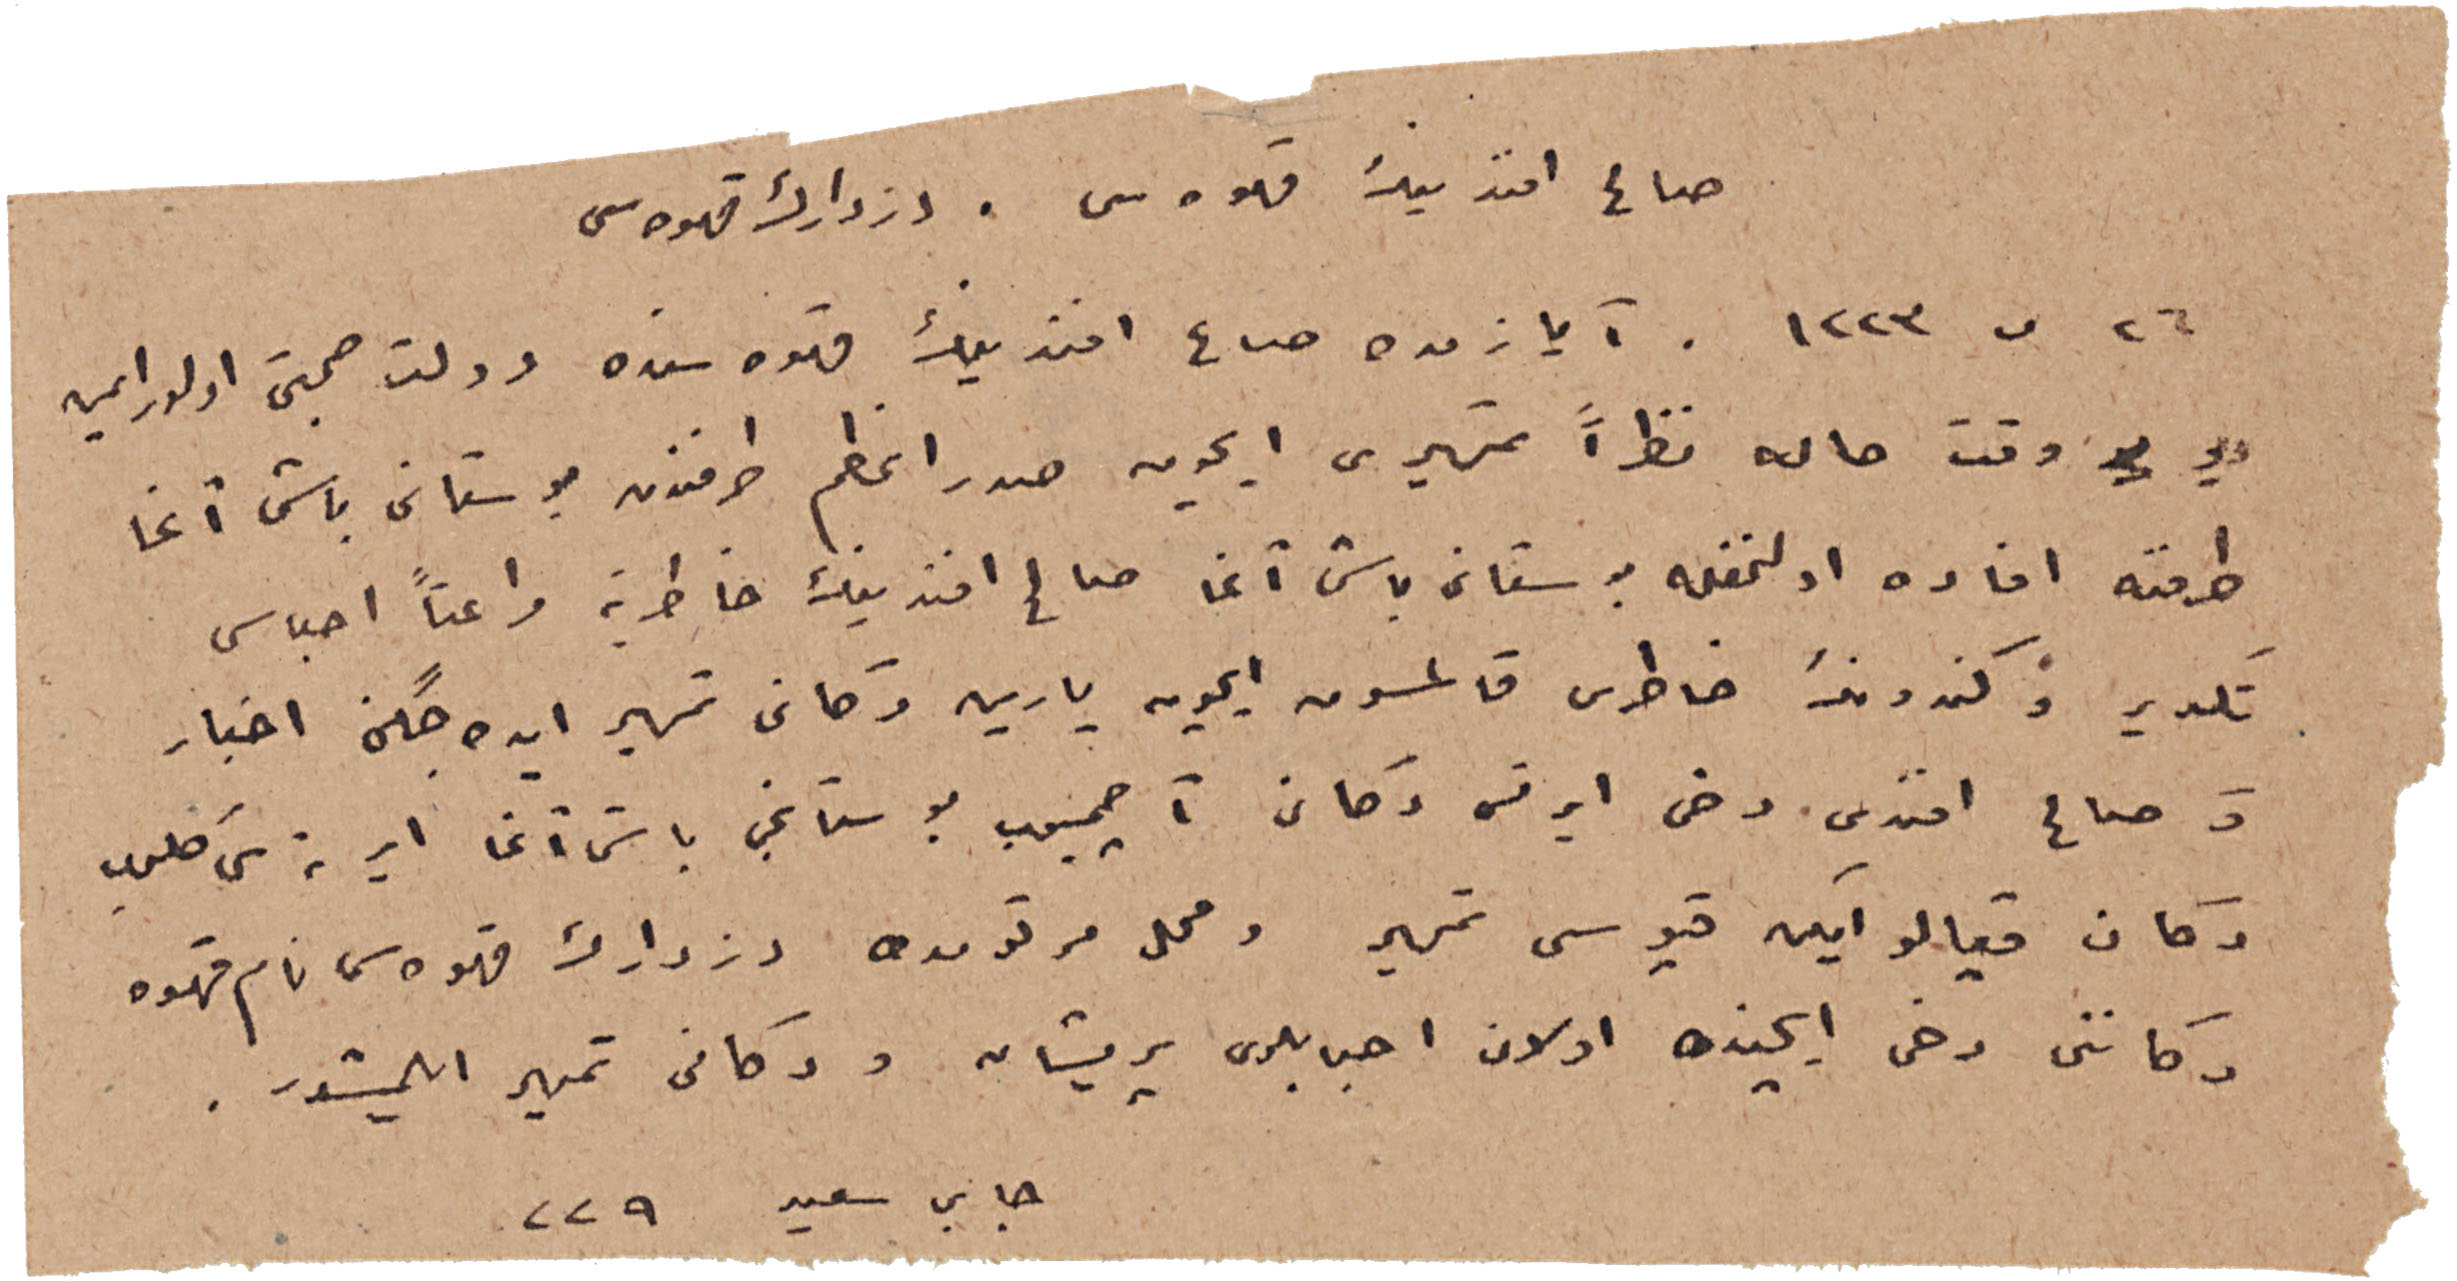 صالح افندینك قهوه سی . دزدارك قهوه سی
٢٦ ن ١٢٢٣ . آیازمده صالح افندینك قهوه سنده دولت صحبتی اولور ایمیش
دیو وقت حاله نظراً تمهیری ایچون صدر اعظم طرفندن بوستانی باشی آغا
طرفنه افاده اولنمغله بوستانی باشی آغا صالح افندینك خاطرینه مراعتاً احبابی
تكدیر و كندونك خاطری قالمسون ایچون یارین دكانی تمهیر ایده جگنی اخبار
و صالح افندی دخی ایرتسی دكانی آچمیوب بوستانجی باشی آغا ایرتسی كلوب
دكان قپالو ایكن قپوسی تمهیر و محل مرقومده دزدارك قهوه سی نام قهوه
دكاننی دخی ایچنده اولان احبابلری پریشان و دكانی تمهیر ایلمیشدر .
جابی سعید ٢٢٩